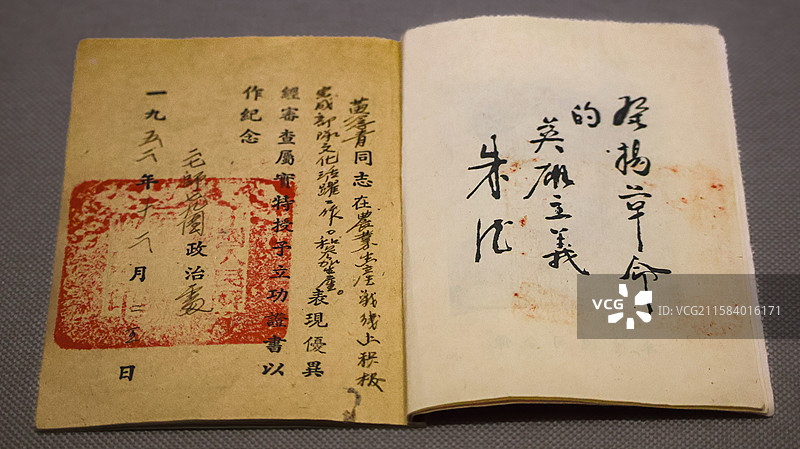 發揚革命
的
英雄主義
朱德
青同志在農業生產战线上积极
完成部隊文化活躍工作。积极生產。表現優異
經審查屬實特授予立功證書以
作紀念
二師 團政治處
一九五二年十二月二 日
VCG
VCG211584016171